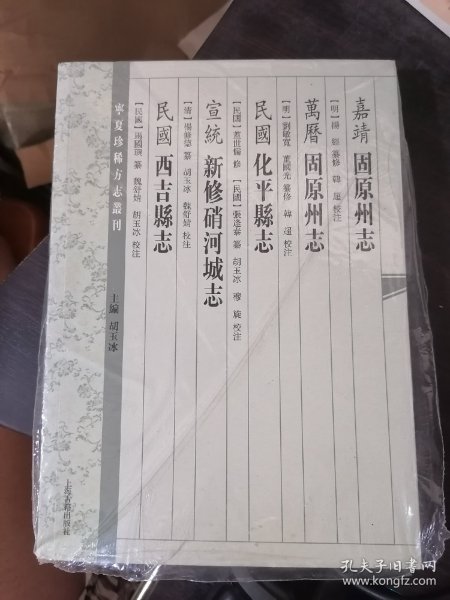 嘉靖 固原州志
【明】楊 經 纂修 韓 超 校注
萬曆 固原州志
【明】劉敏寬 董國光 纂修 韓 超 校注
民國 化平縣志
【民國】蓋世儒 修 【民國】張逢泰 纂 胡玉冰 穆 旋 校注
宣統 新修硝河城志
【清】楊修德 纂 胡玉冰 魏舒婧 校注
民國 西吉縣志
【民國】馬國璵 纂 魏舒婧 胡玉冰 校注
寧夏珍稀方志叢刊
主編 胡玉冰
上海古籍出版社
孔夫子旧书网
www.kongfz.com